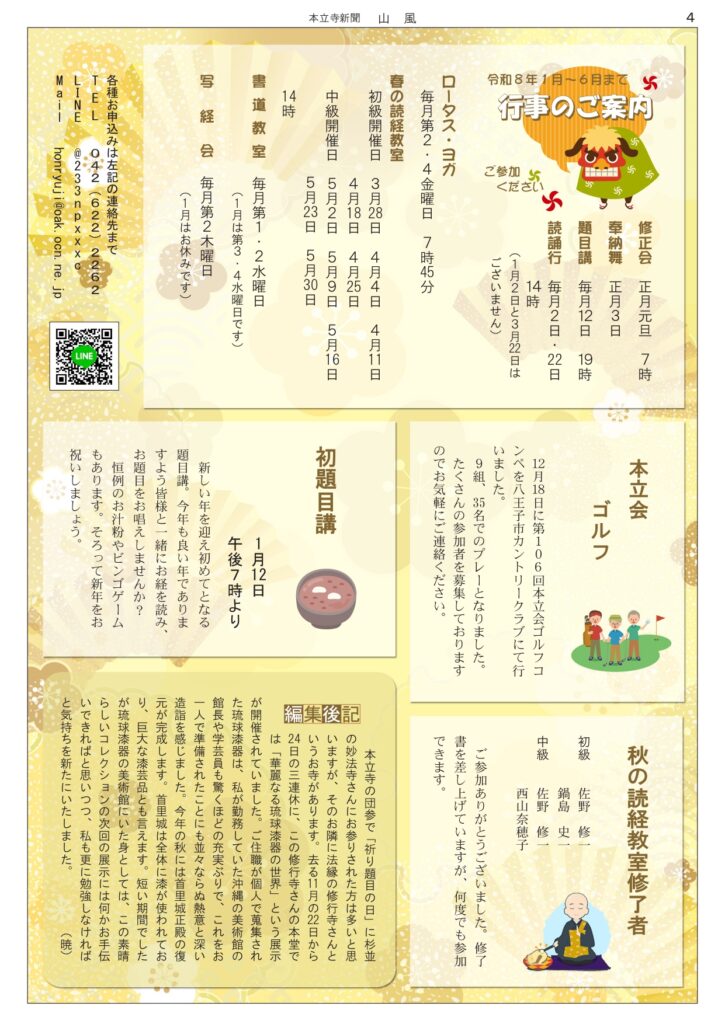 本立寺新聞　山　風
4
令和８年１月～６月まで
行事のご案内
ご参加
ください
修正会　正月元旦　7時
奉納舞　正月3日
題目講　毎月12日　19時
読誦行　毎月2日・22日
14時
（１月２日と３月22日は
ございません）
ロータス・ヨガ
毎月第2・4金曜日　7時45分
春の読経教室
初級開催日　3月28日　4月4日　4月11日
4月18日　4月25日
中級開催日　5月2日　5月9日　5月16日
5月23日　5月30日
14時
書道教室　毎月第1・2水曜日
（１月は第３・４水曜日です）
写経会　毎月第2木曜日
（１月はお休みです）
各種お申込みは左記の連絡先まで
TEL　042（622）2262
LINE　@233npxxxc
Mail　honryuji@oak.ocn.ne.jp
LINE
本立会
ゴルフ
12月18日に第１０６回本立会ゴルフコ
ンペを八王子市カントリークラブにて行
いました。
９組、35名でのプレーとなりました。
たくさんの参加者を募集しております
のでお気軽にご連絡ください。
初題目講
１月12日
午後７時より
新しい年を迎え初めてとなる
題目講。今年も良い年でありま
すよう皆様と一緒にお経を読み、
お題目をお唱えしませんか？
恒例のお汁粉やビンゴゲーム
もあります。そろって新年をお
祝いしましょう。
秋の読経教室修了者
初級　佐野　修一
鍋島　史一
中級　佐野　修一
西山奈穂子
ご参加ありがとうございました。修了
書を差し上げていますが、何度でも参加
できます。
編集後記
本立寺の団参で「祈り題目の日」に杉並
の妙法寺さんにお参りされた方は多いと思
いますが、そのお隣に法縁の修行寺さんと
いうお寺があります。去る11月の22日から
24日の三連休に、この修行寺さんの本堂で
は「華麗なる琉球漆器の世界」という展示
が開催されていました。ご住職が個人で蒐集され
た琉球漆器は、私が勤務していた沖縄の美術館の
館長や学芸員も驚くほどの充実ぶりで、これをお
一人で準備されたことにも並々ならぬ熱意と深い
造詣を感じました。今年の秋には首里城正殿の復
元が完成します。首里城は全体に漆が使われてお
り、巨大な漆芸品とも言えます。短い期間でした
が琉球漆器の美術館にいた身としては、この素晴
らしいコレクションの次回の展示には何かお手伝
いできればと思いつつ、私も更に勉強しなければ
と気持ちを新たにいたしました。　（暁）